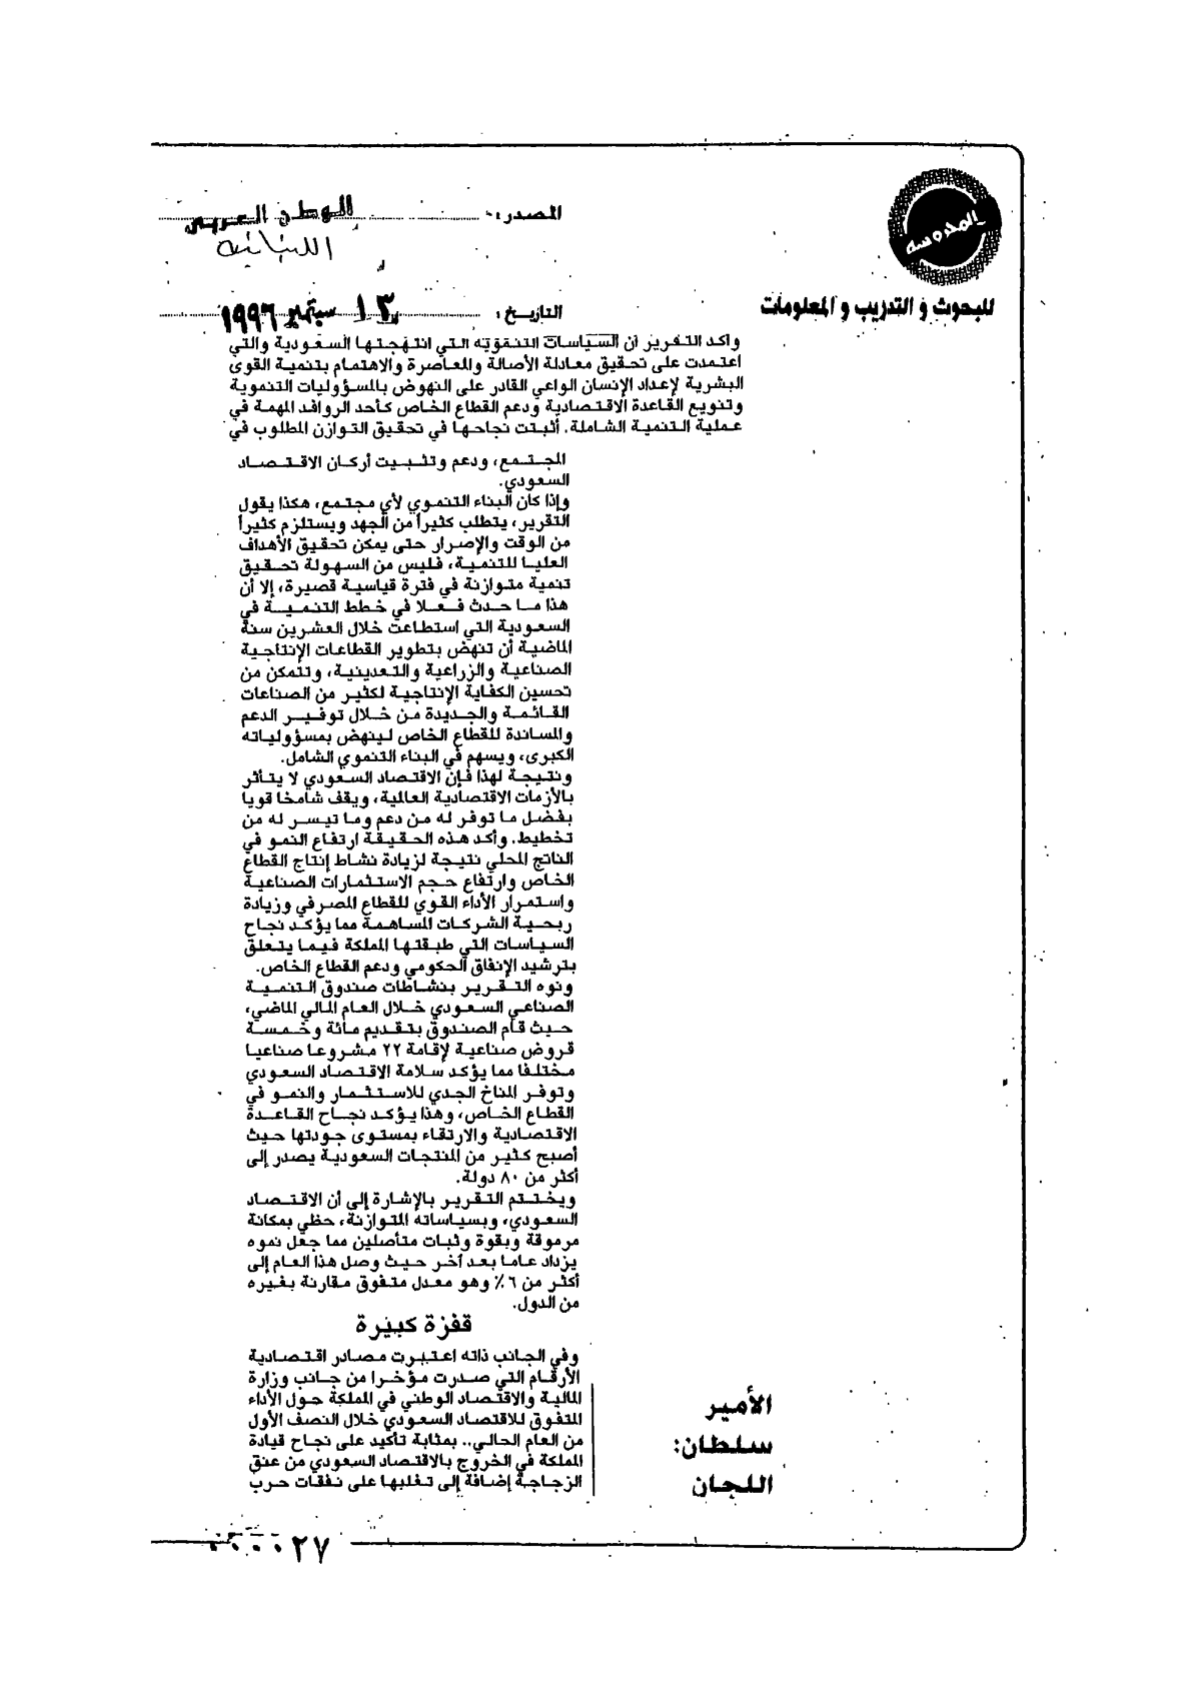 المدوسه
للبحوث و التدريب و المعلومات
المصدر: الوطن العربي
اللبنانيه
التاريخ: ١٣ سبتمبر ١٩٩٦
وأكد التقرير أن السياسات التنموية التي انتهجتها السعودية والتي
اعتمدت على تحقيق معادلة الأصالة والمعاصرة والاهتمام بتنمية القوى
البشرية لإعداد الإنسان الواعي القادر على النهوض بالمسؤوليات التنموية
وتنويع القاعدة الاقتصادية ودعم القطاع الخاص كأحد الروافد المهمة في
عملية التنمية الشاملة. أثبتت نجاحها في تحقيق التوازن المطلوب في
المجتمع، ودعم وتثبيت أركان الاقتصاد
السعودي.
وإذا كان البناء التنموي لأي مجتمع، هكذا يقول
التقرير، يتطلب كثيراً من الجهد ويستلزم كثيراً
من الوقت والإصرار حتى يمكن تحقيق الأهداف
العليا للتنمية، فليس من السهولة تحقيق
تنمية متوازنة في فترة قياسية قصيرة، إلا أن
هذا ما حدث فعلا في خطط التنمية في
السعودية التي استطاعت خلال العشرين سنة
الماضية أن تنهض بتطوير القطاعات الإنتاجية
الصناعية والزراعية والتعدينية، وتتمكن من
تحسين الكفاية الإنتاجية لكثير من الصناعات
القائمة والجديدة من خلال توفير الدعم
والمساندة للقطاع الخاص لينهض بمسؤولياته
الكبرى، ويسهم في البناء التنموي الشامل.
ونتيجة لهذا فإن الاقتصاد السعودي لا يتأثر
بالأزمات الاقتصادية العالمية، ويقف شامخا قويا
بفضل ما توفر له من دعم وما تيسر له من
تخطيط. وأكد هذه الحقيقة ارتفاع النمو في
الناتج المحلي نتيجة لزيادة نشاط إنتاج القطاع
الخاص وارتفاع حجم الاستثمارات الصناعية
واستمرار الأداء القوي للقطاع المصرفي وزيادة
ربحية الشركات المساهمة مما يؤكد نجاح
السياسات التي طبقتها المملكة فيما يتعلق
بترشيد الإنفاق الحكومي ودعم القطاع الخاص.
ونوه التقرير بنشاطات صندوق التنمية
الصناعي السعودي خلال العام المالي الماضي،
حيث قام الصندوق بتقديم مائة وخمسة
قروض صناعية لإقامة ٢٢ مشروعا صناعيا
مختلفا مما يؤكد سلامة الاقتصاد السعودي
وتوفر المناخ الجدي للاستثمار والنمو في
القطاع الخاص، وهذا يؤكد نجاح القاعدة
الاقتصادية والارتقاء بمستوى جودتها حيث
أصبح كثير من المنتجات السعودية يصدر إلى
أكثر من ٨٠ دولة.
ويختتم التقرير بالإشارة إلى أن الاقتصاد
السعودي، وبسياساته المتوازنة، حظي بمكانة
مرموقة وبقوة وثبات متأصلين مما جعل نموه
يزداد عاما بعد آخر حيث وصل هذا العام إلى
أكثر من ٦٪ وهو معدل متفوق مقارنة بغيره
من الدول.
قفزة كبيرة
وفي الجانب ذاته اعتبرت مصادر اقتصادية
الأرقام التي صدرت مؤخرا من جانب وزارة
المالية والاقتصاد الوطني في المملكة حول الأداء
المتفوق للاقتصاد السعودي خلال النصف الأول
من العام الحالي.. بمثابة تأكيد على نجاح قيادة
المملكة في الخروج بالاقتصاد السعودي من عنق
الزجاجة إضافة إلى تغلبها على نفقات حرب
الأمير
سلطان:
اللجان
٠٠٠٠٢٧